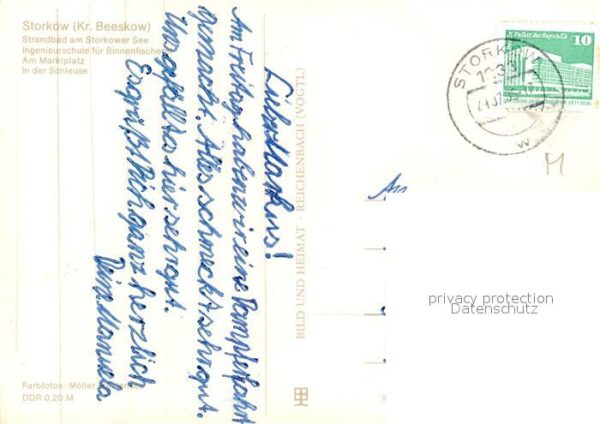 Storkow (Kr. Beeskow)
Strandbad am Storkower See
Ingenieurschule für Binnenfischer
Am Marktplatz
In der Schleuse
Lieber Markus!
Am Freitag haben wir eine Dampferfahrt
gemacht. Alles schmeckt sehr gut.
Uns gefällt es hier sehr gut.
Es grüßt Dich ganz herzlich
Deine Manuela
BILD UND HEIMAT · REICHENBACH (VOGTL)
Farbfotos: Möller,
DDR 0,20 M
Palast der Republik
10
STORKOW
w
M
An
privacy protection
Datenschutz